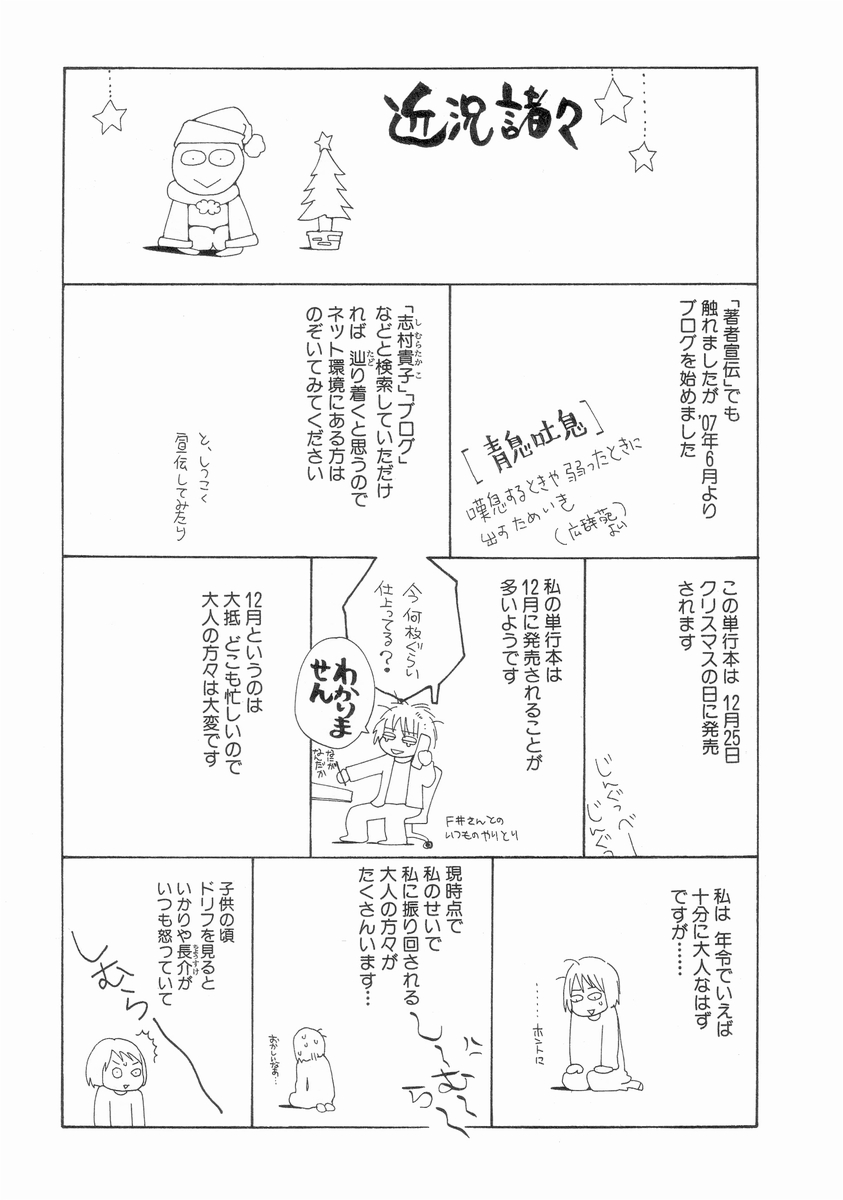 近況諸々
「著者宣伝」でも
触れましたが '07年6月より
ブログを始めました
［青息吐息］
嘆息するときや弱ったときに
出すためいき
（広辞苑より）
「志村貴子」「ブログ」
しむらたかこ
などと検索していただけ
れば 辿り着くと思うので
たど
ネット環境にある方は
のぞいてみてください
と、しつこく
宣伝してみたり
この単行本は 12月25日
クリスマスの日に発売
されます
じんぐっべー
じんぐっ
私の単行本は
12月に発売されることが
多いようです
今 何枚ぐらい
仕上ってる？
わかりま
せん
なにが
なんだか
F井さんとの
いつものやりとり
12月というのは
大抵 どこも忙しいので
大人の方々は大変です
私は 年令でいえば
十分に大人なはず
ですが……
……ホントに
現時点で
私のせいで
私に振り回される
大人の方々が
たくさんいます…
に
し〜む〜
ら〜
おかしいなあ…
子供の頃
ドリフを見ると
いかりや長介が
ちょうすけ
いつも怒っていて
しむらー